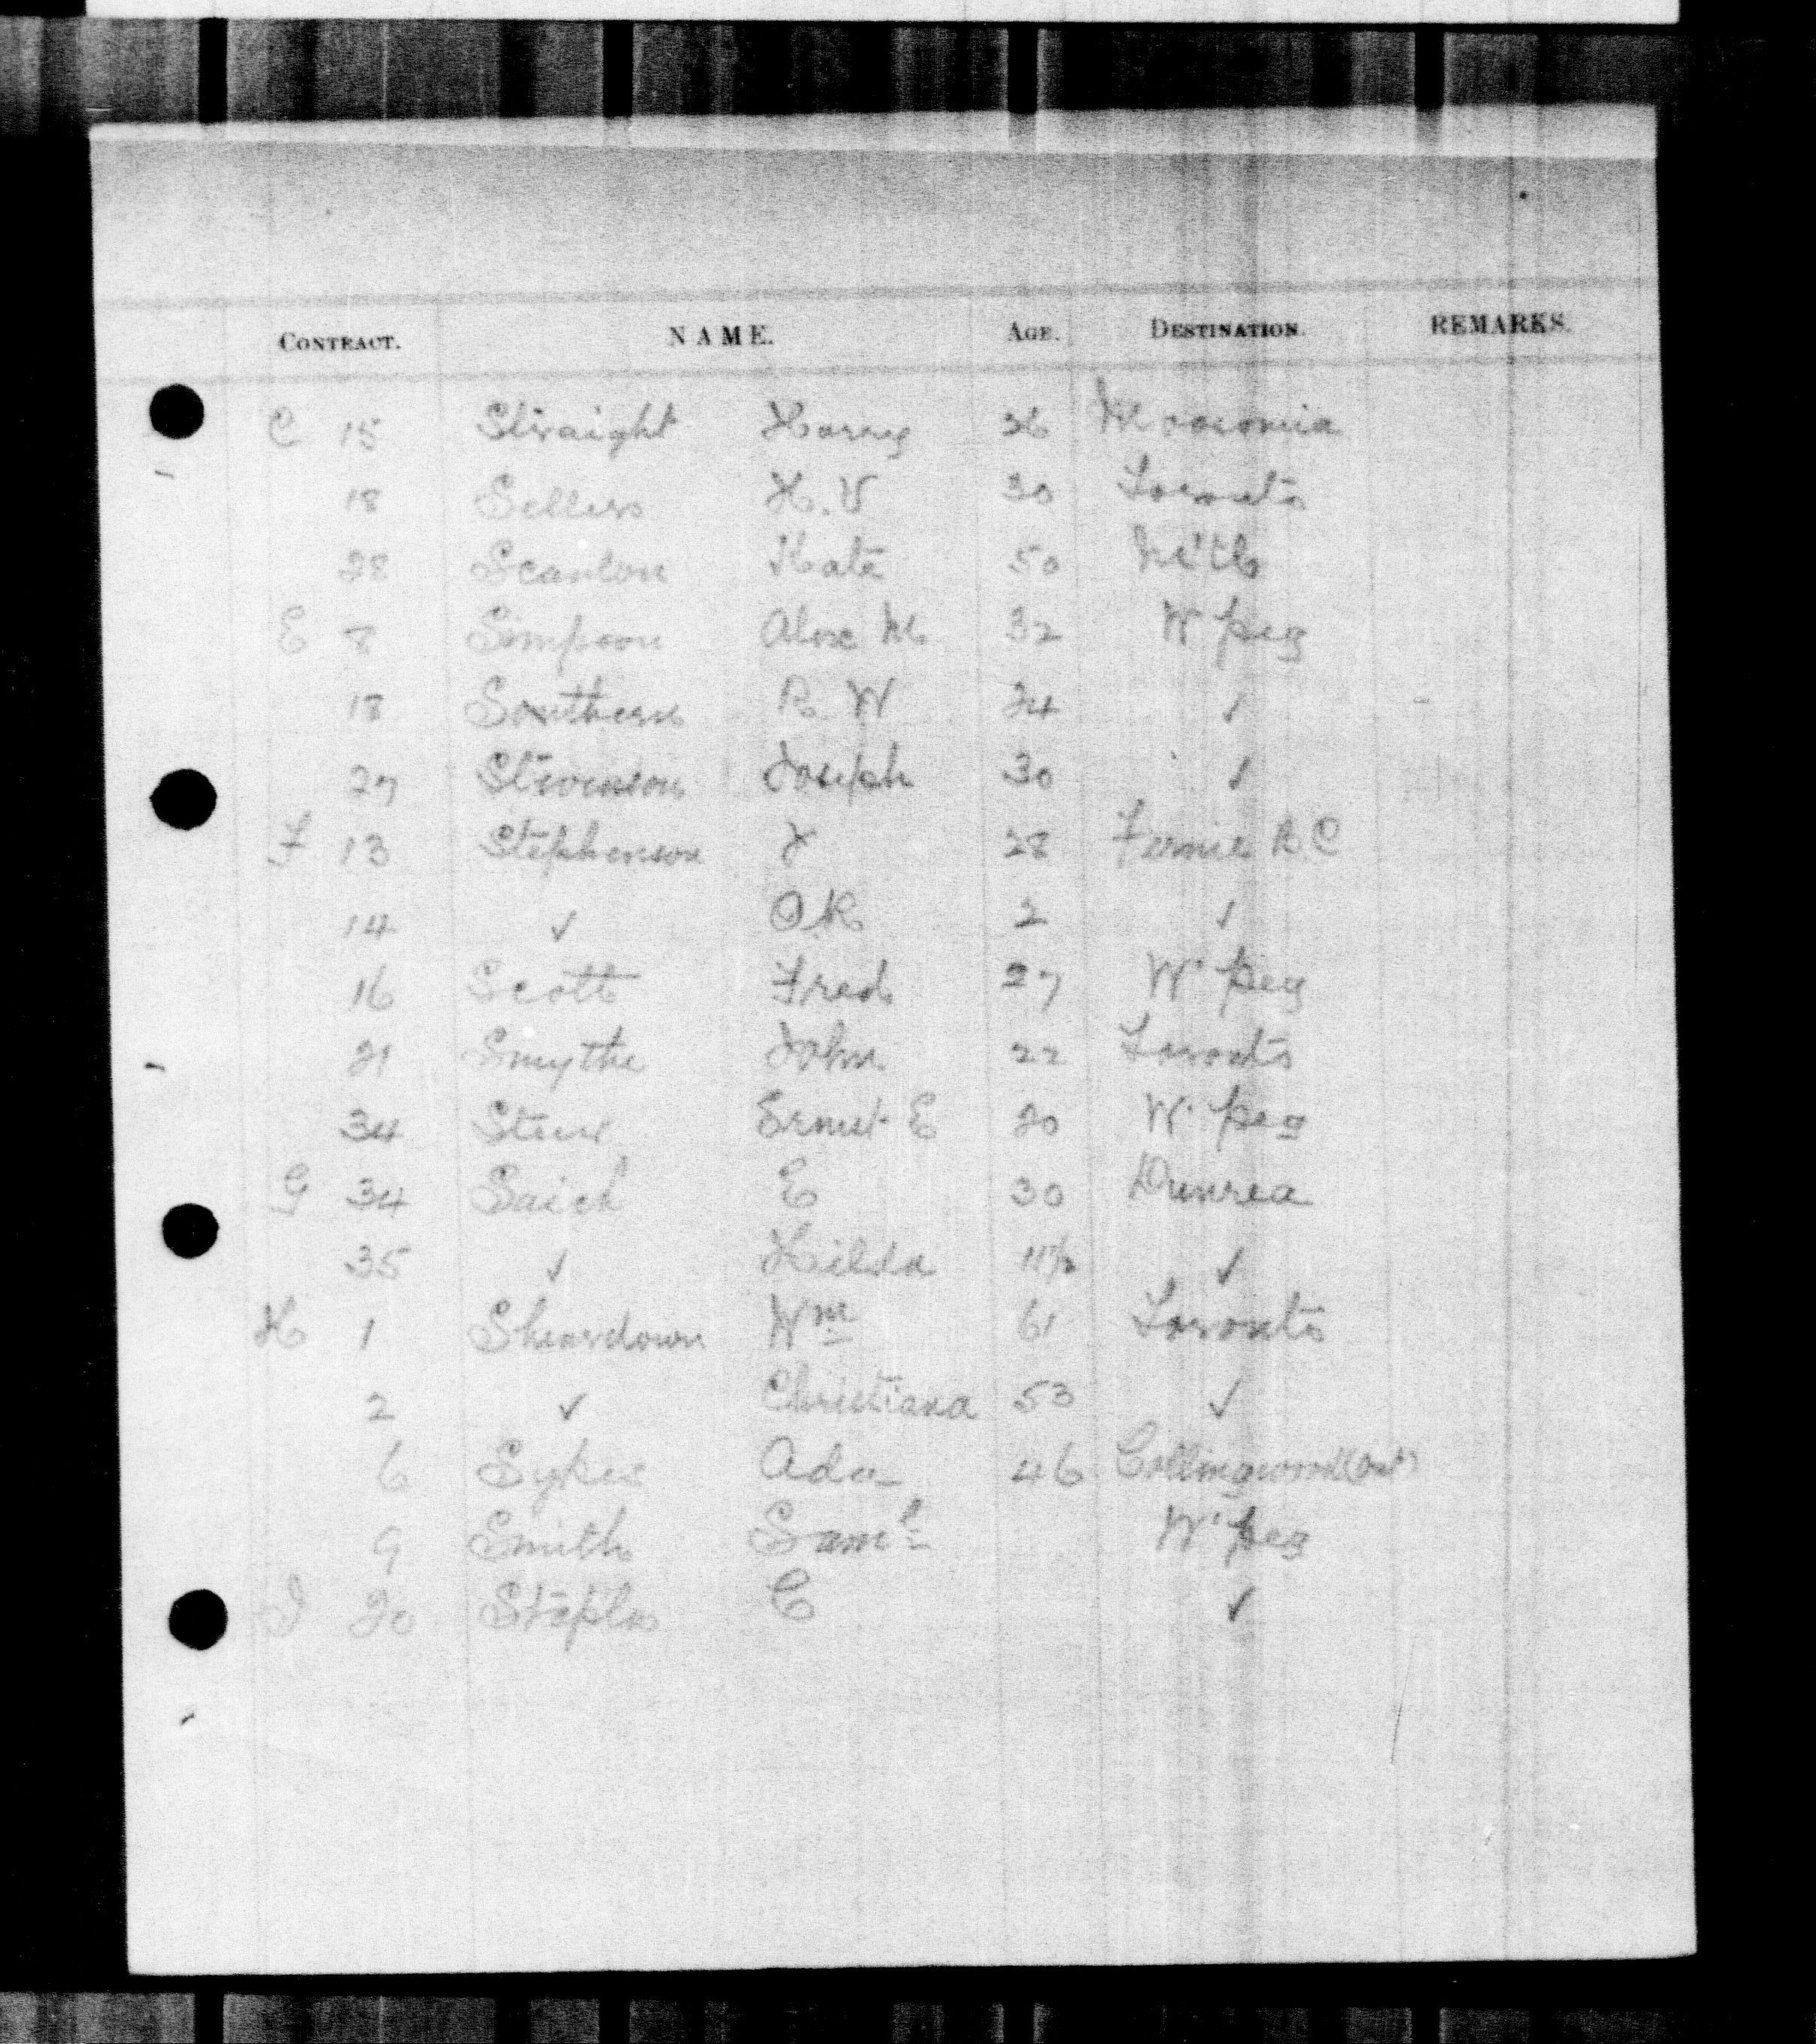 CONTRACT. NAME. AGE. DESTINATION. REMARKS.
C 15 Straight Harry 36 Moosomin
18 Sellers H. V 30 Toronto
28 Scanlon Kate 50 M'tl
E 8 Simpson Alex M 32 W'peg
18 Southern R W 24 ✓
27 Stevenson Joseph 30 ✓
F 13 Stephenson 28 Fernie B C
14 ✓ O.R 2 ✓
16 Scott Fred 27 W'peg
21 Smythe John 22 Toronto
34 Ernest E 20 W'peg
G 34 Saich E 30 Dunrea
35 ✓ Hilda ✓
H 1 Sheardown Wm 61 Toronto
2 ✓ Christiana 53 ✓
6 Sykes Ada 46 Collingwood (Ont)
9 Smith Saml W'peg
I 20 Staples C ✓